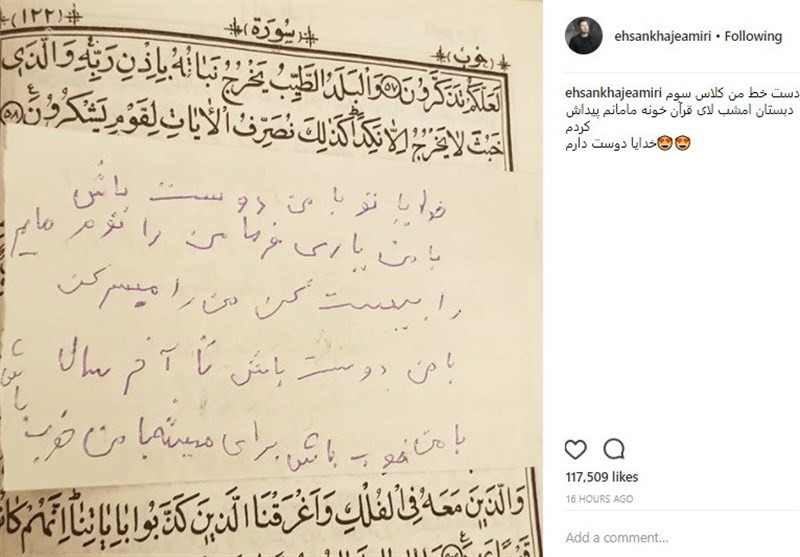 (۱۲۲)
سورة
خوب
لَعَلَّكُمْ تَذَكَّرُونَ ﴿۵۷﴾ وَالْبَلَدُ الطَّيِّبُ يَخْرُجُ نَبَاتُهُ بِإِذْنِ رَبِّهِ وَالَّذِي
خَبُثَ لَا يَخْرُجُ إِلَّا نَكِدًا كَذَٰلِكَ نُصَرِّفُ الْآيَاتِ لِقَوْمٍ يَشْكُرُونَ ﴿۵۸﴾
خدایا تو با من دوست باش
با من یاری فرما من را
را بیست کن من را
با من دوست باش تا آخر سال
با من خوب باش برای همیشه با من خوب
باش
وَالَّذِينَ مَعَهُ فِي الْفُلْكِ وَأَغْرَقْنَا الَّذِينَ كَذَّبُوا بِآيَاتِنَا إِنَّهُمْ كَانُوا
ehsankhajeamiri • Following
ehsankhajeamiri دست خط من کلاس سوم
دبستان امشب لای قرآن خونه مامانم پیداش
کردم
خدایا دوست دارم😍😍
117,509 likes
16 HOURS AGO
Add a comment...